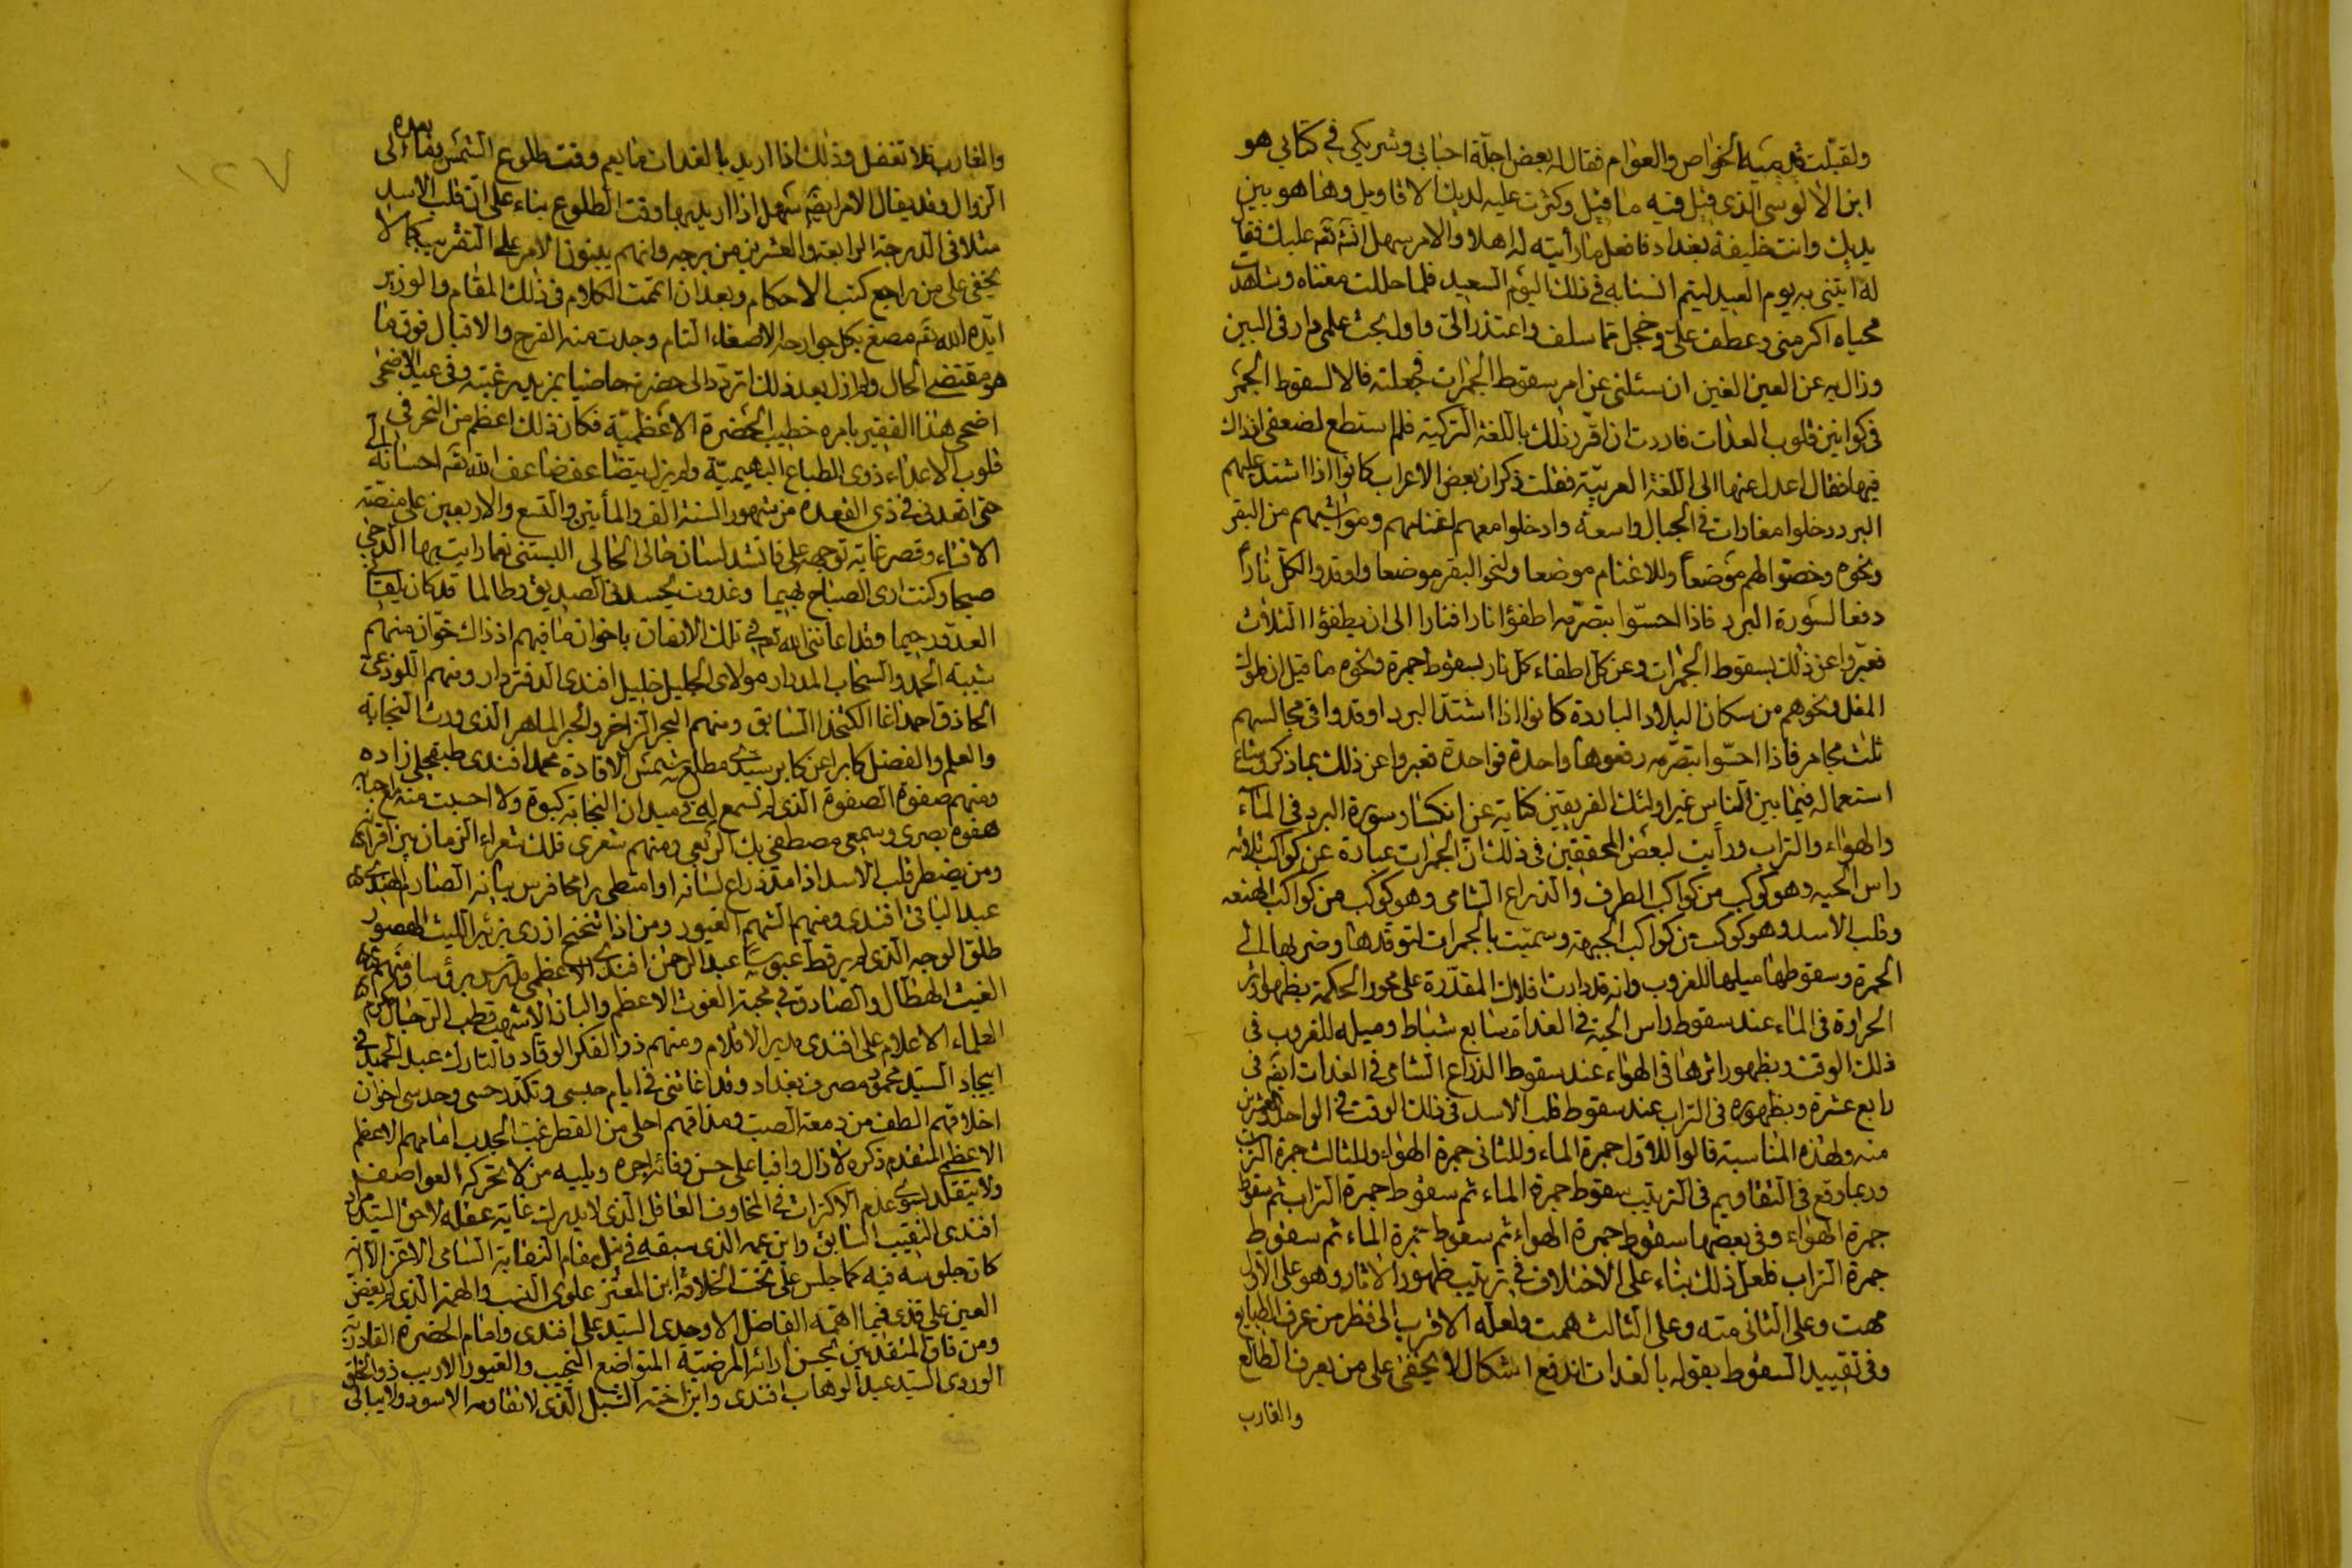 ولقبّلت قدميه الخواص والعوام فقال له بعض اجلّة احبابي وشريكي في كتابي هو
ابن الالوسي الذي قيل فيه ما قيل وكثرت عليه لديك الاقاويل وها هو بين
يديك وانت خليفة بغداد فافعل ما رأيته له اهلا والامر سهل انشء تعه عليك فقال
له ايتني به يوم العيد ليتم السنا به في ذلك اليوم السعيد فلما حللت مغناه وشاهدت
محياه اكرمني وعطف عليّ وخجل مما سلف واعتذر اليّ واول بحث علمي دار في البين
وزال به عن العين الغين ان سئلني عن امر سقوط الجمرات فجعلته فالا لسقوط الجمر
في كوانين قلوب العدات فاردت ان اقرر ذلك باللغة التركية فلم استطع لضعفي اذ ذاك
فيها فقال اعدل عنها الى اللغة العربيّة فقلت ذكر ان بعض الاعراب كانوا اذا اشتد عليهم
البرد دخلوا مغارات في الجبال واسعة وادخلوا معهم اغنامهم ومواشيهم من البقر
ونحوه وخصّوا لهم موضعاً وللاغنام موضعا ولنحو البقر موضعا واوقدوا لكل ناراً
دفعا لسورة البرد فاذا احسّوا بتصرّمه اطفؤا نارا فنارا الى ان يطفؤا الثلاث
فعبّروا عن ذلك بسقوط الجمرات وعن كل اطفاء كل نار بسقوط جمرة ونحوه ما قيل ان ملوك
المغل ونحوهم من سكان البلاد الباردة كانوا اذا اشتدّ البرد اوقدوا في مجالسهم
ثلث مجامر فاذا احسّوا بتصرّمه رفعوها واحدة فواحدة فعبروا عن ذلك بما ذكر وشاع
استعماله فيما بين الناس غير اولئك الفريقين كناية عن انكسار سورة البرد في الماء
والهواء والتراب ورأيت لبعض المحققين في ذلك انّ الجمرات عبارة عن كواكب ثلاثه
راس الحيه وهو كوكب من كواكب الطرف والذراع الشامي وهو كوكب من كواكب الهنعه
وقلب الاسد وهو كوكب من كواكب الجبهة وسميّت بالجمرات لتوقدها وضربها الى
الحمرة وسقوطها ميلها للغروب وانه قد دارت افلاك المقدّرة على محور الحكمة بظهور اثر
الحرارة في الماء عند سقوط راس الحية في الغداة سابع شباط وميله للغروب في
ذلك الوقت وبظهور اثرها في الهواء عند سقوط الذراع الشامي في الغدات ايضه في
رابع عشرة وبظهوره في التراب عند سقوط قلب الاسد في ذلك الوقت في الواحد والعشرين
منه ولهذه المناسبة قالوا للاوّل جمرة الماء وللثاني جمرة الهواء وللثالث جمرة التراب
وربما وقع في التقاويم في الترتيب سقوط جمرة الماء ثم سقوط جمرة التراب ثم سقوط
جمرة الهواء وفي بعضها سقوط جمرة الهواء ثم سقوط جمرة الماء ثم سقوط
جمرة التراب فلعل ذلك بناء على الاختلاف في ترتيب ظهور الاثار وهو على الاول
مهت وعلى الثاني مته وعلى الثالث همت ولعله الاقرب الى نظر من عرف الطبايع
وفي تقييد السقوط بقوله بالغدات اندفع اشكال لا يخفى على من يعرف الطالع
والغارب
والغارب فلا تغفل وذلك اذا اريد بالغدات ما يعم وقت طلوع الشمس وما بعده الى
الزوال وقد يقال الامر ايضه سهل اذا اريد بها وقت الطلوع بناء على انّ قلب الاسد
مثلا في الدرجة الرابعة والعشرين من برجه وانهم يبنون الامر على التقريب كما لا
يخفى على من راجع كتب الاحكام وبعد ان اتممت الكلام في ذلك المقام والوزير
ايّده الله تعه مصغ بكل جوارحه الاصغاء التام وجدت منه الفرح والاقبال فوق ما
هو مقتضى الحال ولم ازل بعد ذلك اتردد الى حضرته حاضيا بمزيد رغبته وفي عيد الاضحى
اضحى هذا الفقير بامره خطيب الحضرة الاعظميّة فكان ذلك اعظم من النحر في
قلوب الاعداء ذوي الطباع البهيميّة ولم يزل يتضاعف ضاعف الله تعه احسانه اليّ
حتى اقعدني في ذي القعده من شهور السنة الالف والمأتين والتسع والاربعين على منصّة
الافتاء وقصر غاية توجهه علي فانشد لسان حالي الخالي البستني نعما رايت بها الدجى
صبحا وكنت ارى الصباح بهيما وغدوت يحسدني الصديق وطالما قد كان يلقاني
العدوّ رحيما وقد اعانني الله تعه في تلك الاوقات باخوان ما فيهم اذ ذاك خوّان منهم
شيبة الحمد والسحاب المدرار مولاي الجليل خليل افندي الدفتردار ومنهم اللوذعي
الحاذق احمد اغا الكتخدا السابق ومنهم البحر الزاخر والحبر الماهر الذي ورث النجابة
والعلم والفضل كابرا عن كابر سيدي مطلع شمس الافادة محمد افندي طبقجلي زاده
ومنهم صفوة الصفوة الذي لم تسمع له في ميدان النجابة كبوة ولا احست منه
هفوه بصري وسمعي مصطفى بك الربعي ومنهم شعرى فلك شعراء الزمان بين اقرانه
ومن يضطر قلب الاسد اذا مدّ ذراع لسانه او امتطى رامحا فرس بيانه الصارم الهندي
عبد الباقي افندي ومنهم الشهم الغيور ومن اذا تنخنح ازرى بزئير الليث الهصور
طلق الوجه الذي لم ير قط عبوسا عبد الرحمن افندي الاعظمي ومنهم
الغيث الهطال والصادق في محبة الغوث الاعظم والباز الاشهب قطب الرجال
العلماء الاعلام علي افندي مدير الاقلام ومنهم ذو الفكر الوقاد والتارك عبد الحميد في
ايجاد السيّد محمود مصرف بغداد وقد اغاثني في ايام حبسي وتكدّر حسي وحدسي اخوان
اخلاقهم الطف من دمعة الصب ومذاقهم احلى من القطر غبّ الجدب امامهم الاعظم
الاعظمي المتقدم ذكره لا زال وافيا على حسن وفائه اجره ويليه من لا تحركه العواصف
ولا يتقلد سوى عدم الاكتراث في المخاوف العاقل الذي لا يدرك غاية عقله لاحق السيّد
افندي النقيب السابق وابن عمه الذي سبقه في نيل مقام النقابة السامي الاعز الا انه
كان جلوسه فيه كما جلس على تخت الخلافة ابن المعتز علوي النسب والهمة الذي لم يغض
العين على قذى فيما اهمّه الفاضل الاوحدي السيّد علي افندي وامام الحضرة القادريّة
ومن فاق المتقدمين بحسن ارائه المرضيّة المتواضع النجيب والغيور الاديب ذو الخلق
الوردي السيّد عبد الوهاب افندي وابن اخته الشبل الذي لا تقاومه الاسود ولا يبالي
١٢٧